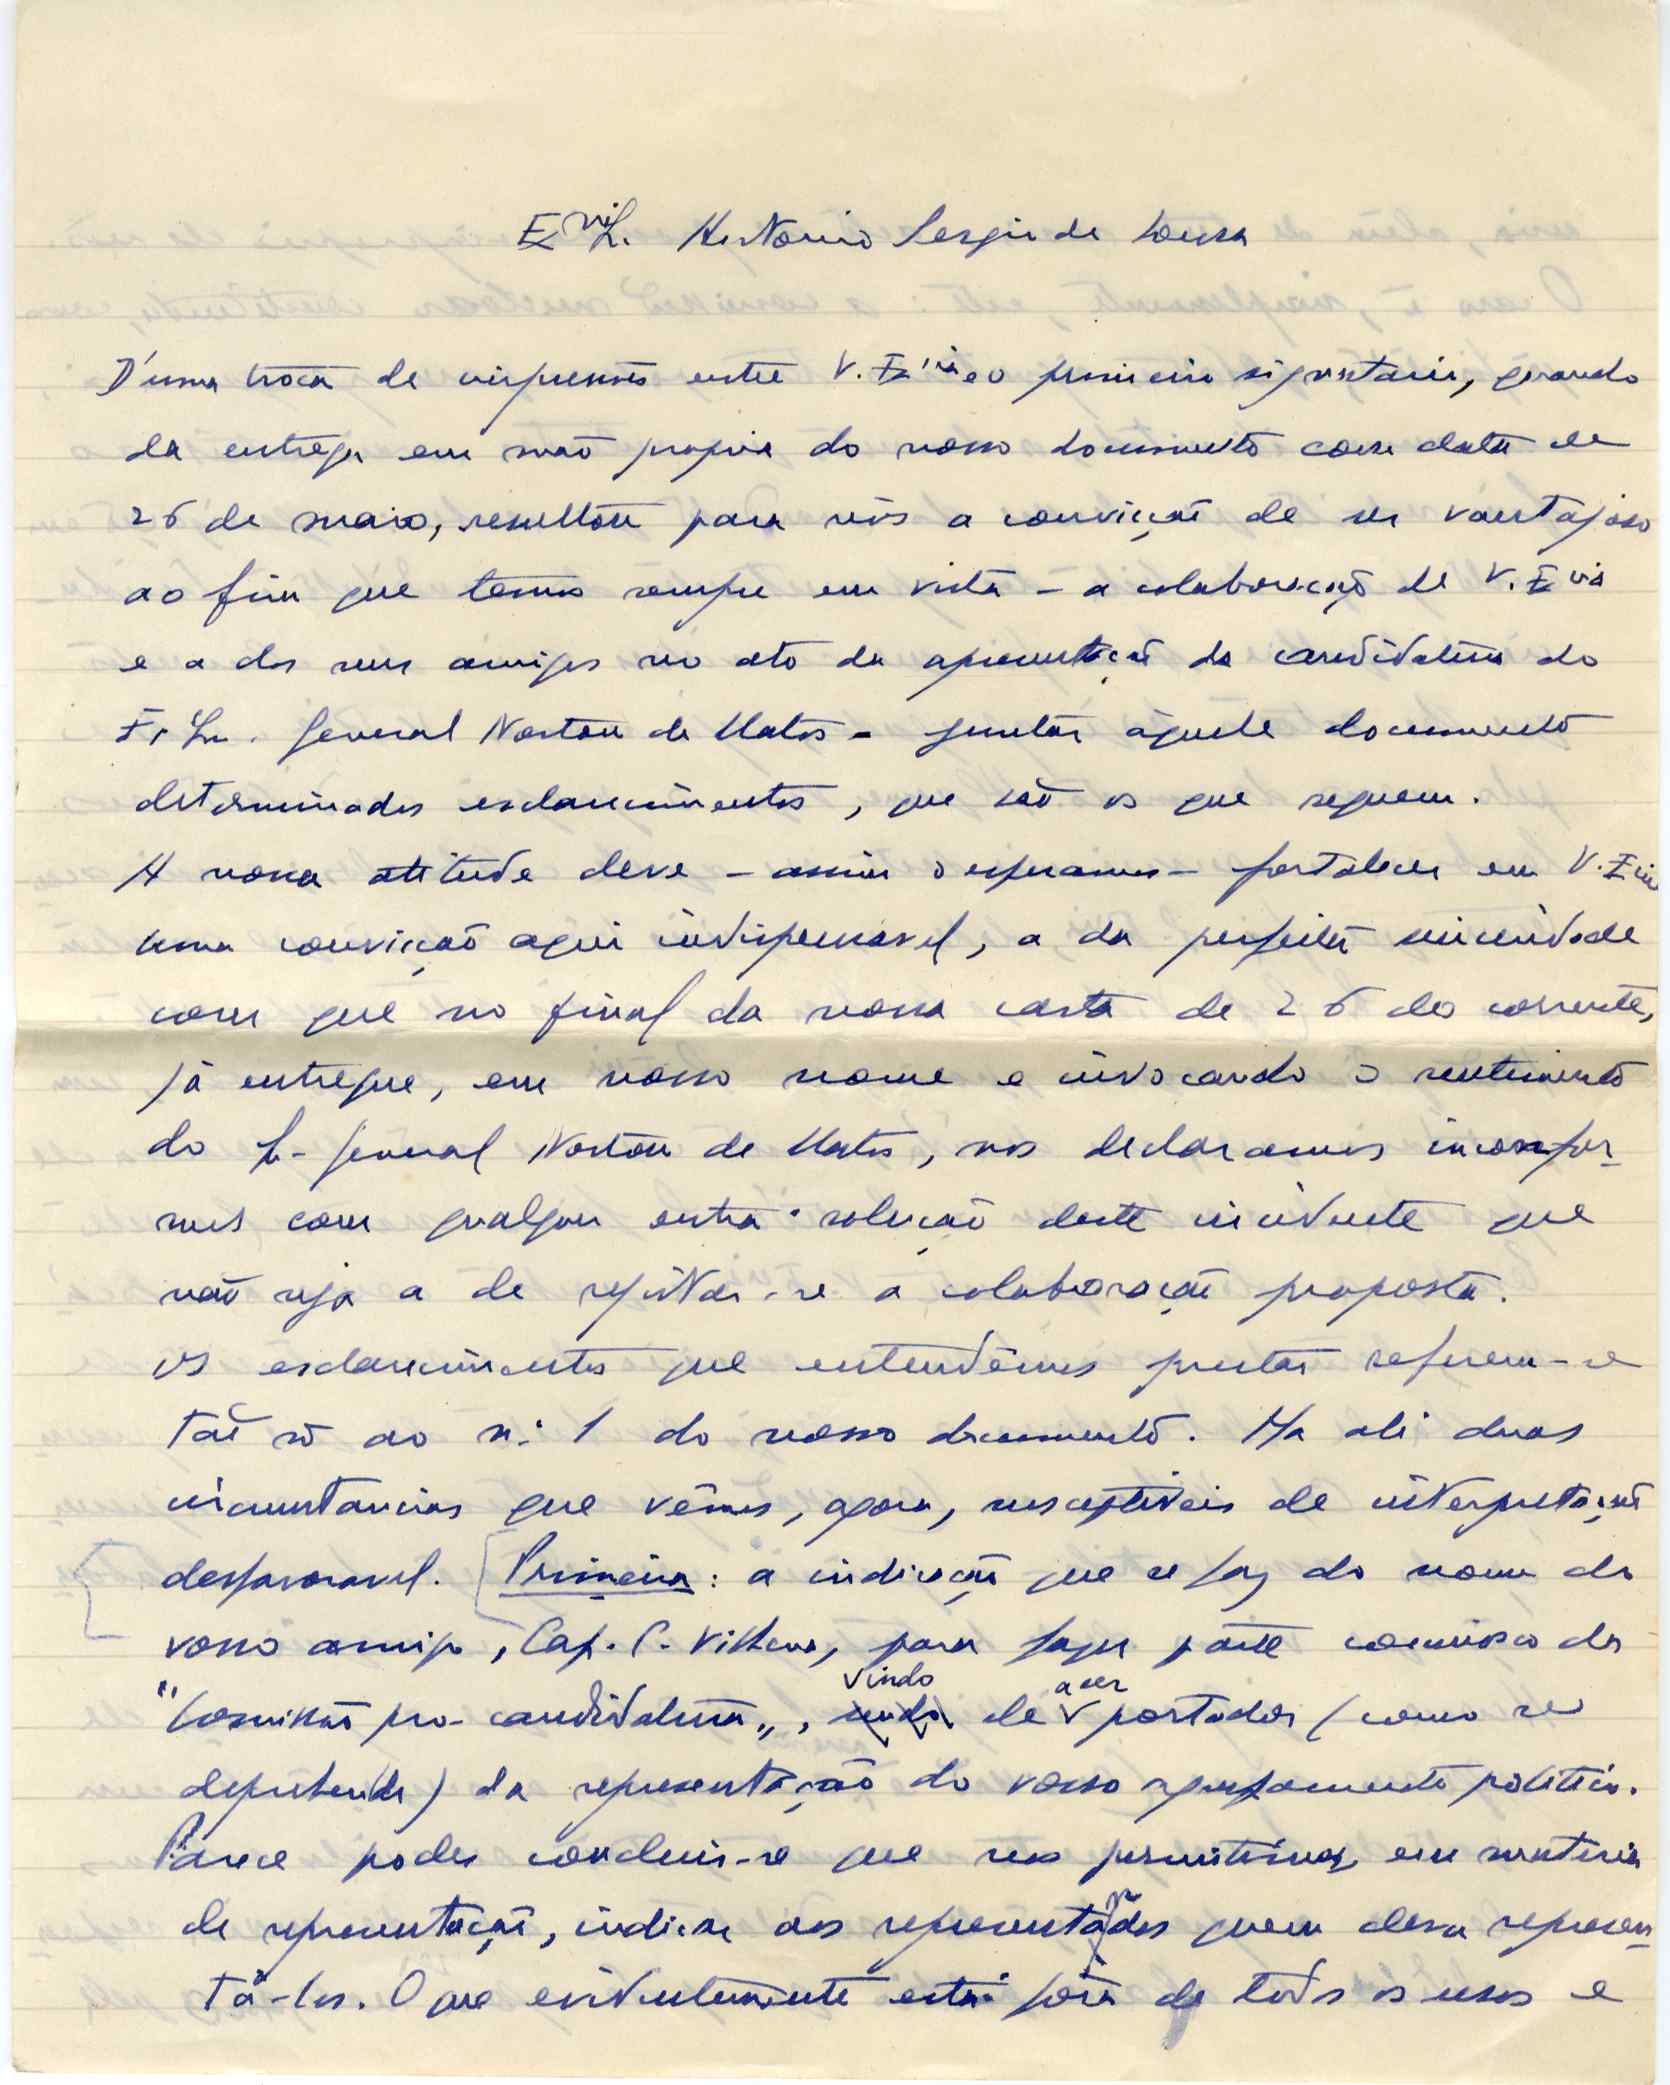 Exmo Sr. Antonio Sergio de Sousa
D'uma troca de impressões entre V. Excia e o primeiro signatario, quando
da entrega em mão propria do nosso documento com data de
26 de maio, resultou para nós a convicção de ser vantajoso
ao fim que temos sempre em vista - a colaboração de V. Excia
e a dos seus amigos no ato da apresentação da candidatura do
Ex. Sr. General Norton de Matos - juntar àquele documento
determinados esclarecimentos, que são os que seguem.
A nossa atitude deve - assim o esperamos - fortalecer em V. Excia
uma convicção aqui indispensavel, a da perfeita sinceridade
com que no final da nossa carta de 26 do corrente,
já entregue, em nosso nome e invocando o sentimento
do Sr. General Norton de Matos, nos declaramos inconfor-
mes com qualquer outra solução deste incidente que
não seja a de efectivar-se a colaboração proposta.
Os esclarecimentos que entendêmos prestar referem-se
tão só ao n.º 1 do nosso documento. Ha ali duas
circunstancias que vêmos, agora, susceptiveis de interpretação
desfavoravel. Primeira: a indicação que se faz do nome do
vosso amigo, Cap. C. Vilhena, para fazer parte comnosco da
"Comissão pro-candidatura", vindo de a ser portador (como se
deprehende) da representação do vosso agrupamento politico.
Parece poder concluir-se que nos permitimos, em materia
de representação, indicar aos representados quem deva represen-
tá-los. O que evidentemente está fóra de todos os usos e